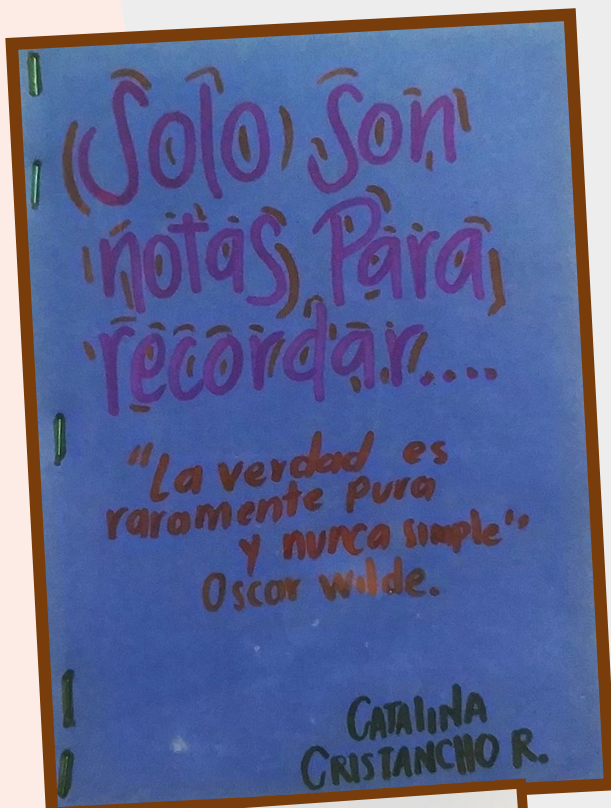 Solo Son
notas Para
recordar....
"La verdad es
raramente pura
y nunca simple"
Oscar wilde.
CATALINA
CRISTANCHO R.